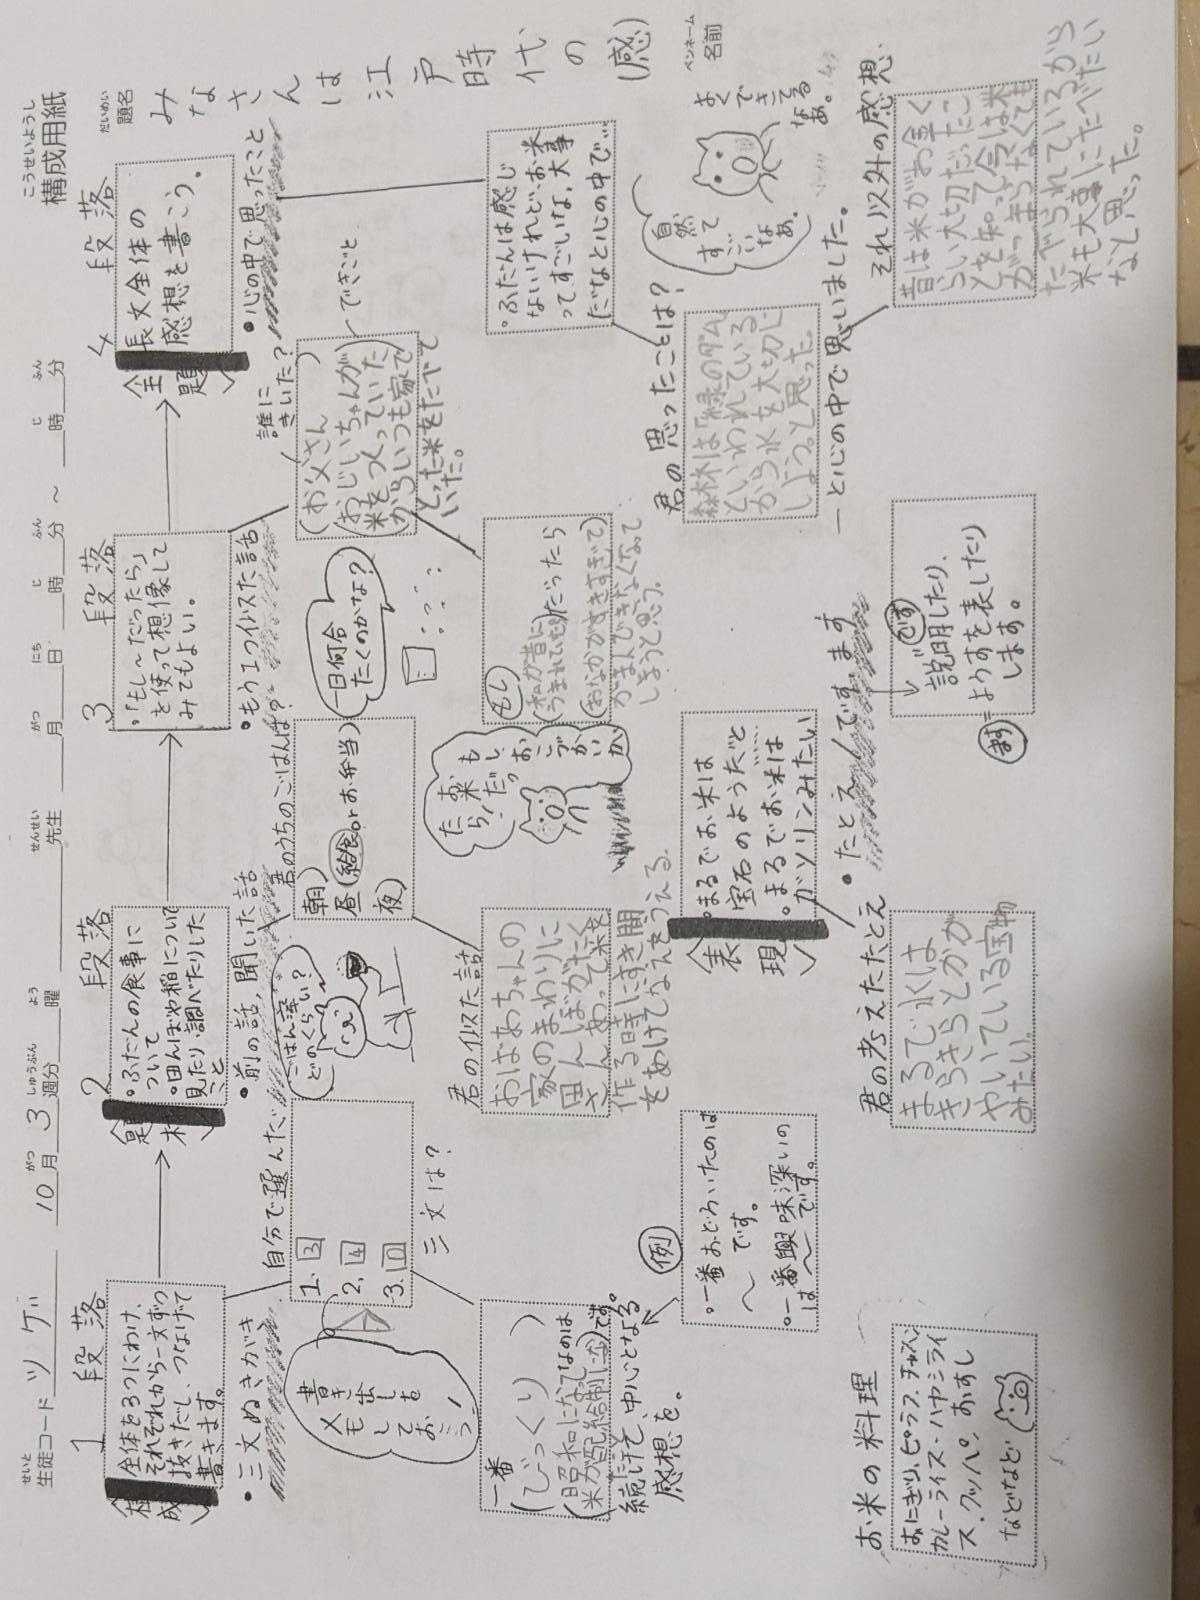 こうせいようし
構成用紙
だいめい
題名
みなさんは江戸時代の(感)
ペンネーム
名前
せいと
生徒コード ツゲ
10月3週分
がつ
しゅうぶん
よう
曜
せんせい
先生
がつ
月
にち
日
じ
時
ふん
分
〜
じ
時
ふん
分
1段落
構成
全体を3つにわけ、
それぞれから一文ずつ
抜きだし、つなげて
書きます。
・三文ぬきがき
自分で選んだ
1. 3
2. 4
3.
三文は?
書き出しを
メモして
おこう!
一番
(びっくり)なのは
(昭和になって
米が配給制になったこと)です。
続けて、中心となる
感想を。
例
・一番おどろいたのは
〜です。
・一番興味深いの
は〜です。
お米の料理
おにぎり、ピラフ、チャーハン
カレーライス・ハヤシライ
ス・クッパ、おすし
などなど
2段落
題材
・ふだんの食事に
ついて
・田んぼや稲について
見たり、調べたりした
こと
・前の話、聞いた話
君のうちのごはんは?
朝)
昼(給食orお弁当)
夜)
一日何合
たくのかな?
君の似た話
おばあちゃんの
家のまわりに
田んぼがたく
さんあって米を
作る時にすき間
をあけてなえをうえる。
もし、おこづかいが
お米だっ
たら!
表現
・まるでお米は
宝石のようだ
・まるでお米は
ガソリンみたい
・たとえ
君の考えたたとえ
まるで水は
きらきらとかが
やいている宝物
みたい。
です ます
です
説明したり、
ようすを表したり
します。
ます
3段落
・「もし〜だったら」
と使って想像して
みてもよい。
・もう1つ似た話
誰に
きいた?
できごと
(お父さん)
(おじいちゃんが
米をつくっていた
からいつも家で
とった米をたべて
いた。
もし
(私が昔に
うまれていた)だったら
(おなかがすきすぎて)
がまんできなくなって
しまうと思う。
4段落
全題
長文全体の
感想を書こう。
・心の中で思ったこと
・ふだんは感じ
ないけれど、お米
ってすごいな、大事
だなと心の中で…
君の思ったことは?
森林は「緑のダム」
といわれている
から水を大切に
しよう。と思った。
自然って
すごいなぁ。
よくできてる
なぁ。
―と心の中で思いました。
それ以外の感想、
昔は米がお金く
らい大切だったこ
とを知って今は米
たべられているから
米も大事にたべたい
なと思った。